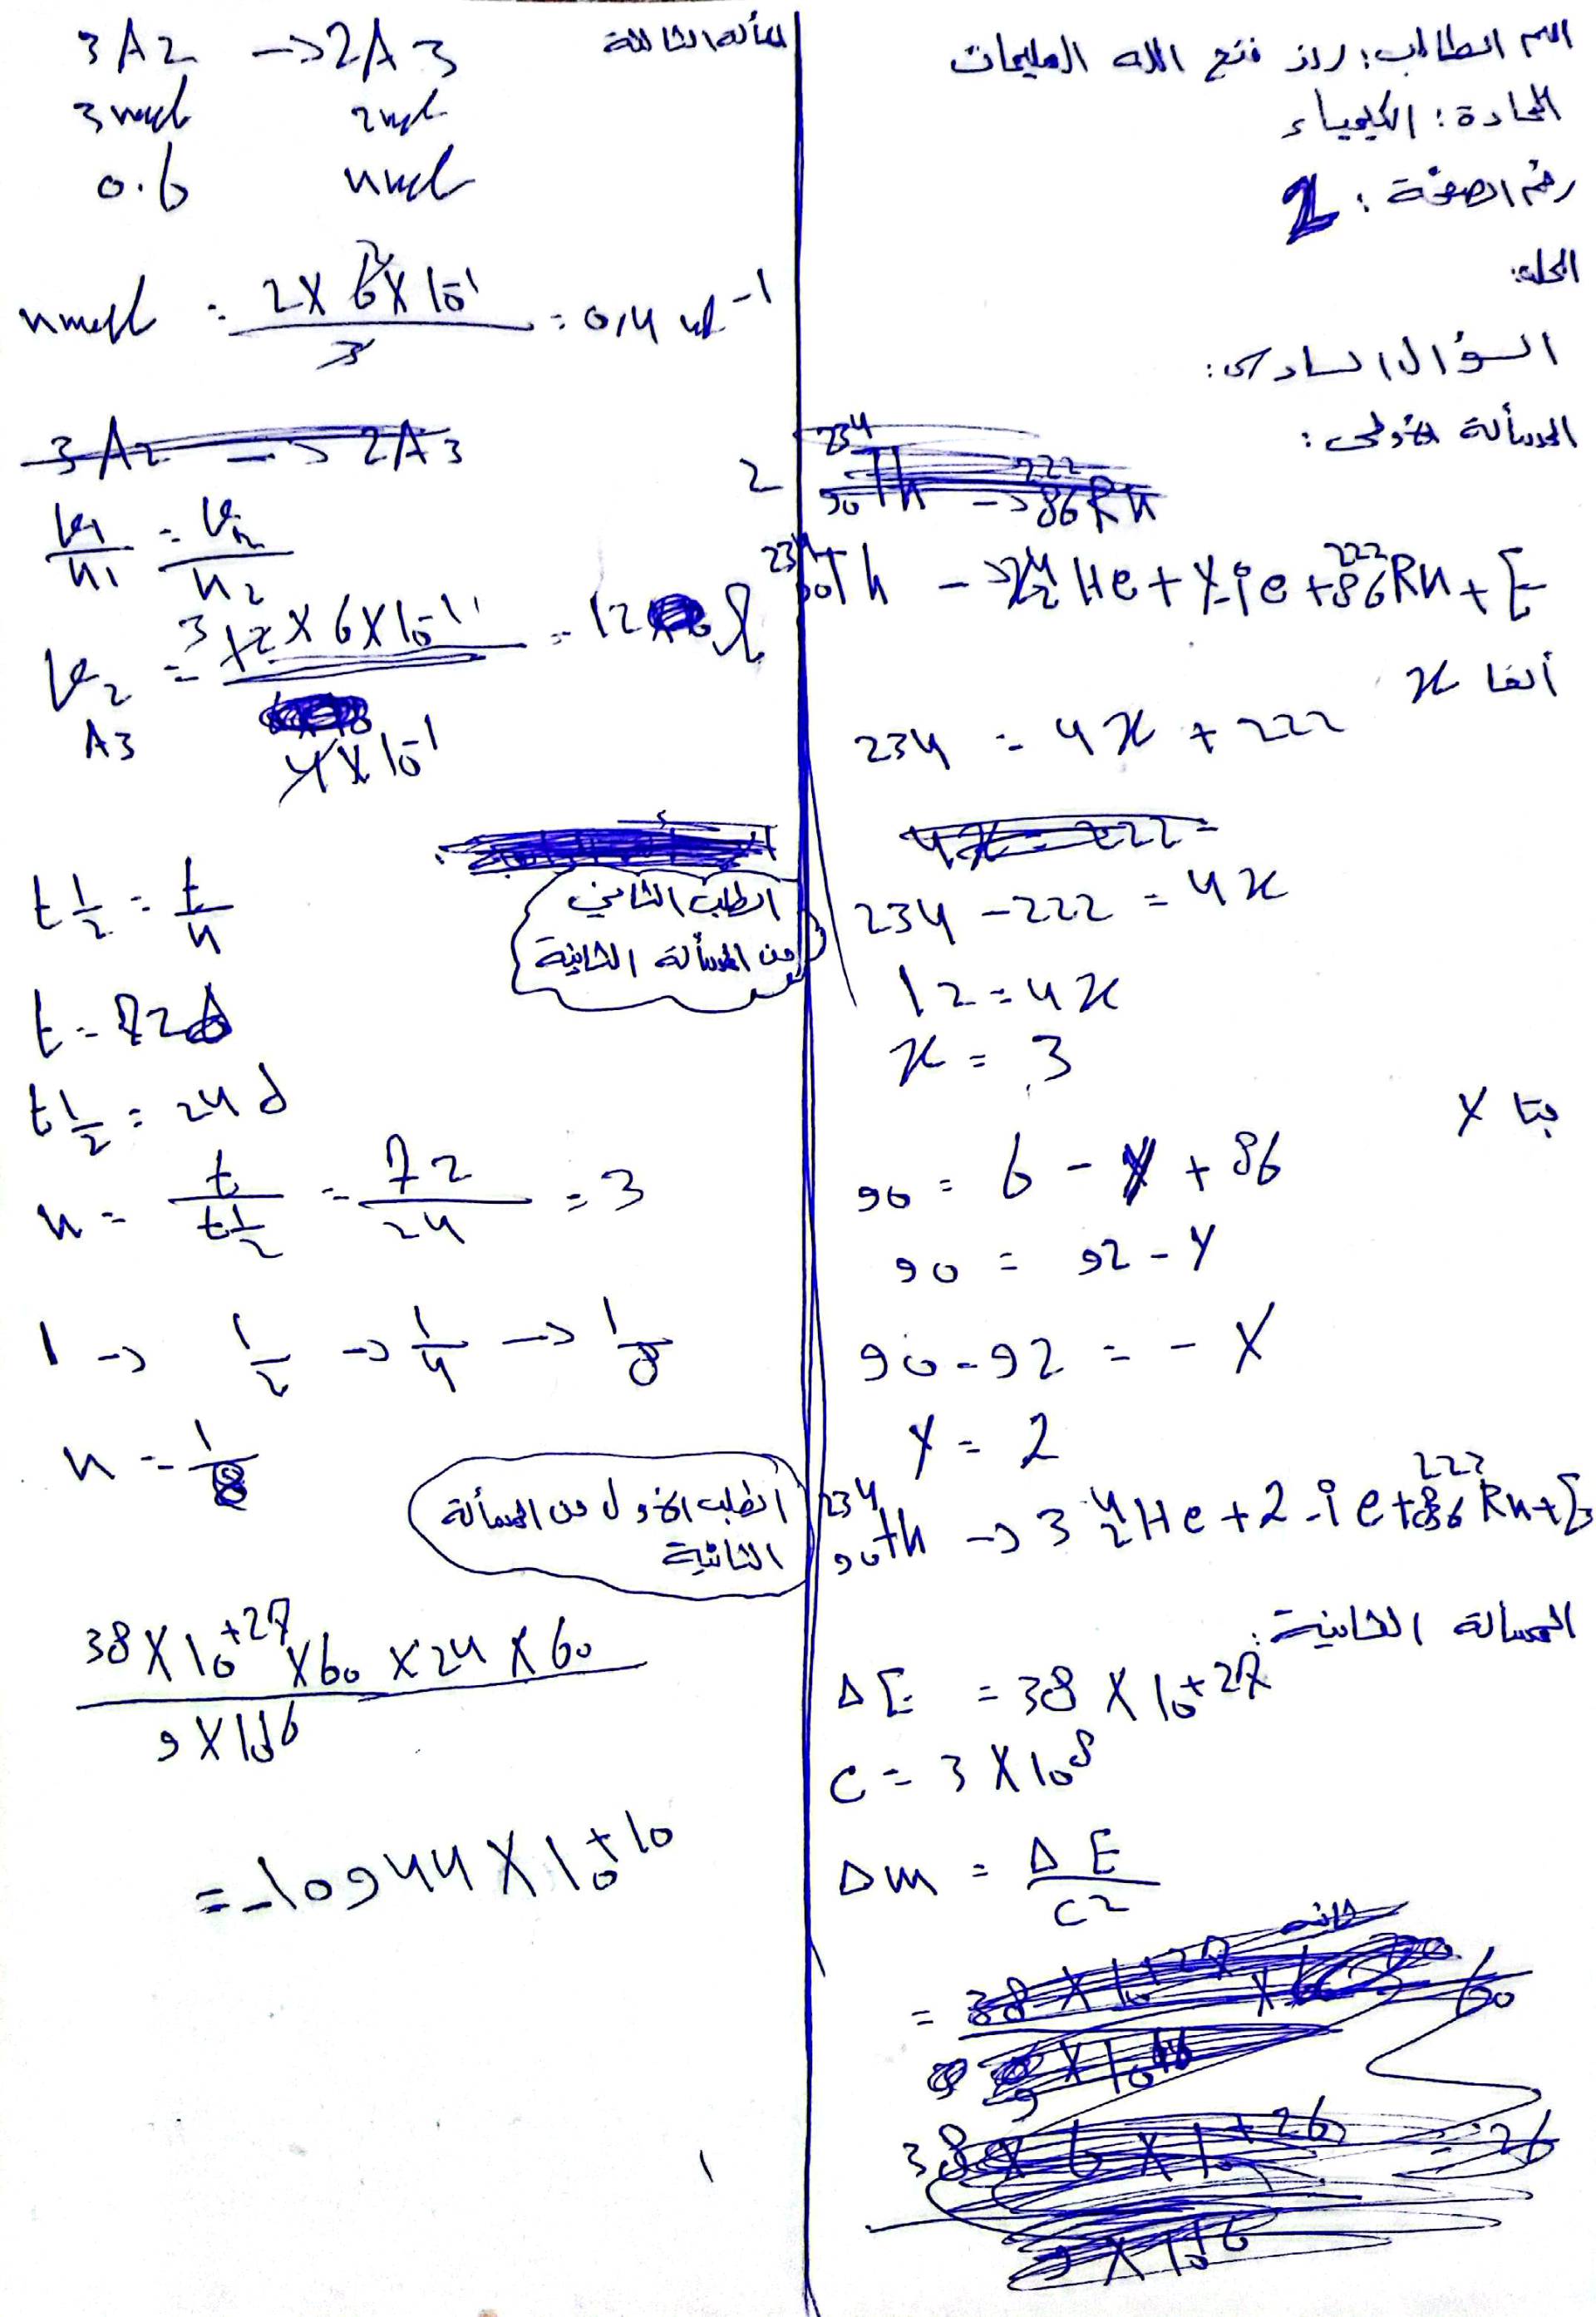 اسم الطالب: راز فتح الله العليمات
المادة: الكيمياء
رقم الصفحة: 2
الحل:
السؤال السادس:
المسألة الأولى:
²³⁴₉₀Th -> ²²²₈₆Rn
²³⁴₉₀Th -> x ⁴₂He + y ⁰₋₁e + ²²²₈₆Rn + E
ألفا x
234 = 4x + 222
4x = 222 =
234 - 222 = 4x
12 = 4x
x = 3
بيتا y
90 = 6 - y + 86
90 = 92 - y
90 - 92 = - y
y = 2
²³⁴₉₀Th -> 3 ⁴₂He + 2 ⁰₋₁e + ²²²₈₆Rn + E
المسألة الثانية:
ΔE = 38 × 10⁺²⁷
C = 3 × 10⁸
Δm = ΔE / C2
المسألة الثالثة
3A2 -> 2A3
3 mol 2 mol
0.6 n mol
n mol = 2 × 6 × 10⁻¹ / 3 = 0,4 mol⁻¹
3A2 -> 2A3
V1 / n1 = V2 / n2
V2 A3 = 12 × 6 × 10⁻¹ / 4 × 10⁻¹ = 12 l
الطلب الثاني
من المسألة الثانية
t 1/2 = t / n
t = 72 d
t 1/2 = 24 d
n = t / t 1/2 = 72 / 24 = 3
1 -> 1/2 -> 1/4 -> 1/8
n = 1/8
الطلب الأول من المسألة
الثانية
38 × 10⁺²⁷ × 60 × 24 × 60 / 9 × 10¹⁶
= -10944 × 10⁺¹⁰